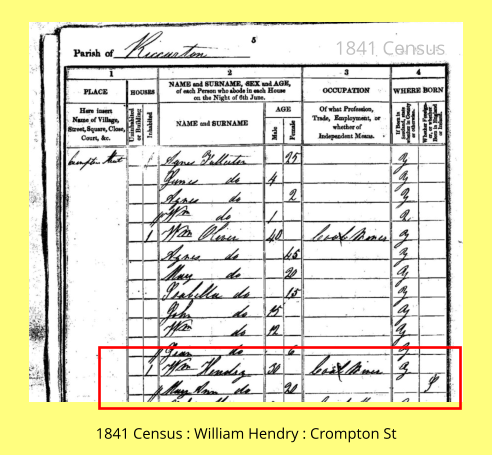 5
1841 Census
Parish of Riccarton
1 2 3 4
PLACE HOUSES NAME and SURNAME, SEX and AGE, of each Person who abode in each House on the Night of 6th June. OCCUPATION WHERE BORN
Here insert Name of Village, Street, Square, Close, Court, &c.
Uninhabited or Building
Inhabited
NAME and SURNAME
AGE
Male
Female
Of what Profession, Trade, Employment, or whether of Independent Means.
Agnes 25
James do 4
Agnes do 2
Wm do 1
1 Wm Oliver 40 Coal Miner
Agnes do 45
May do 20
Isabella do 15
John do 15
Wm do 12
Jean do 6
1 Wm Hendry 30 Coal Miner
Mary Ann do 20
1841 Census : William Hendry : Crompton St